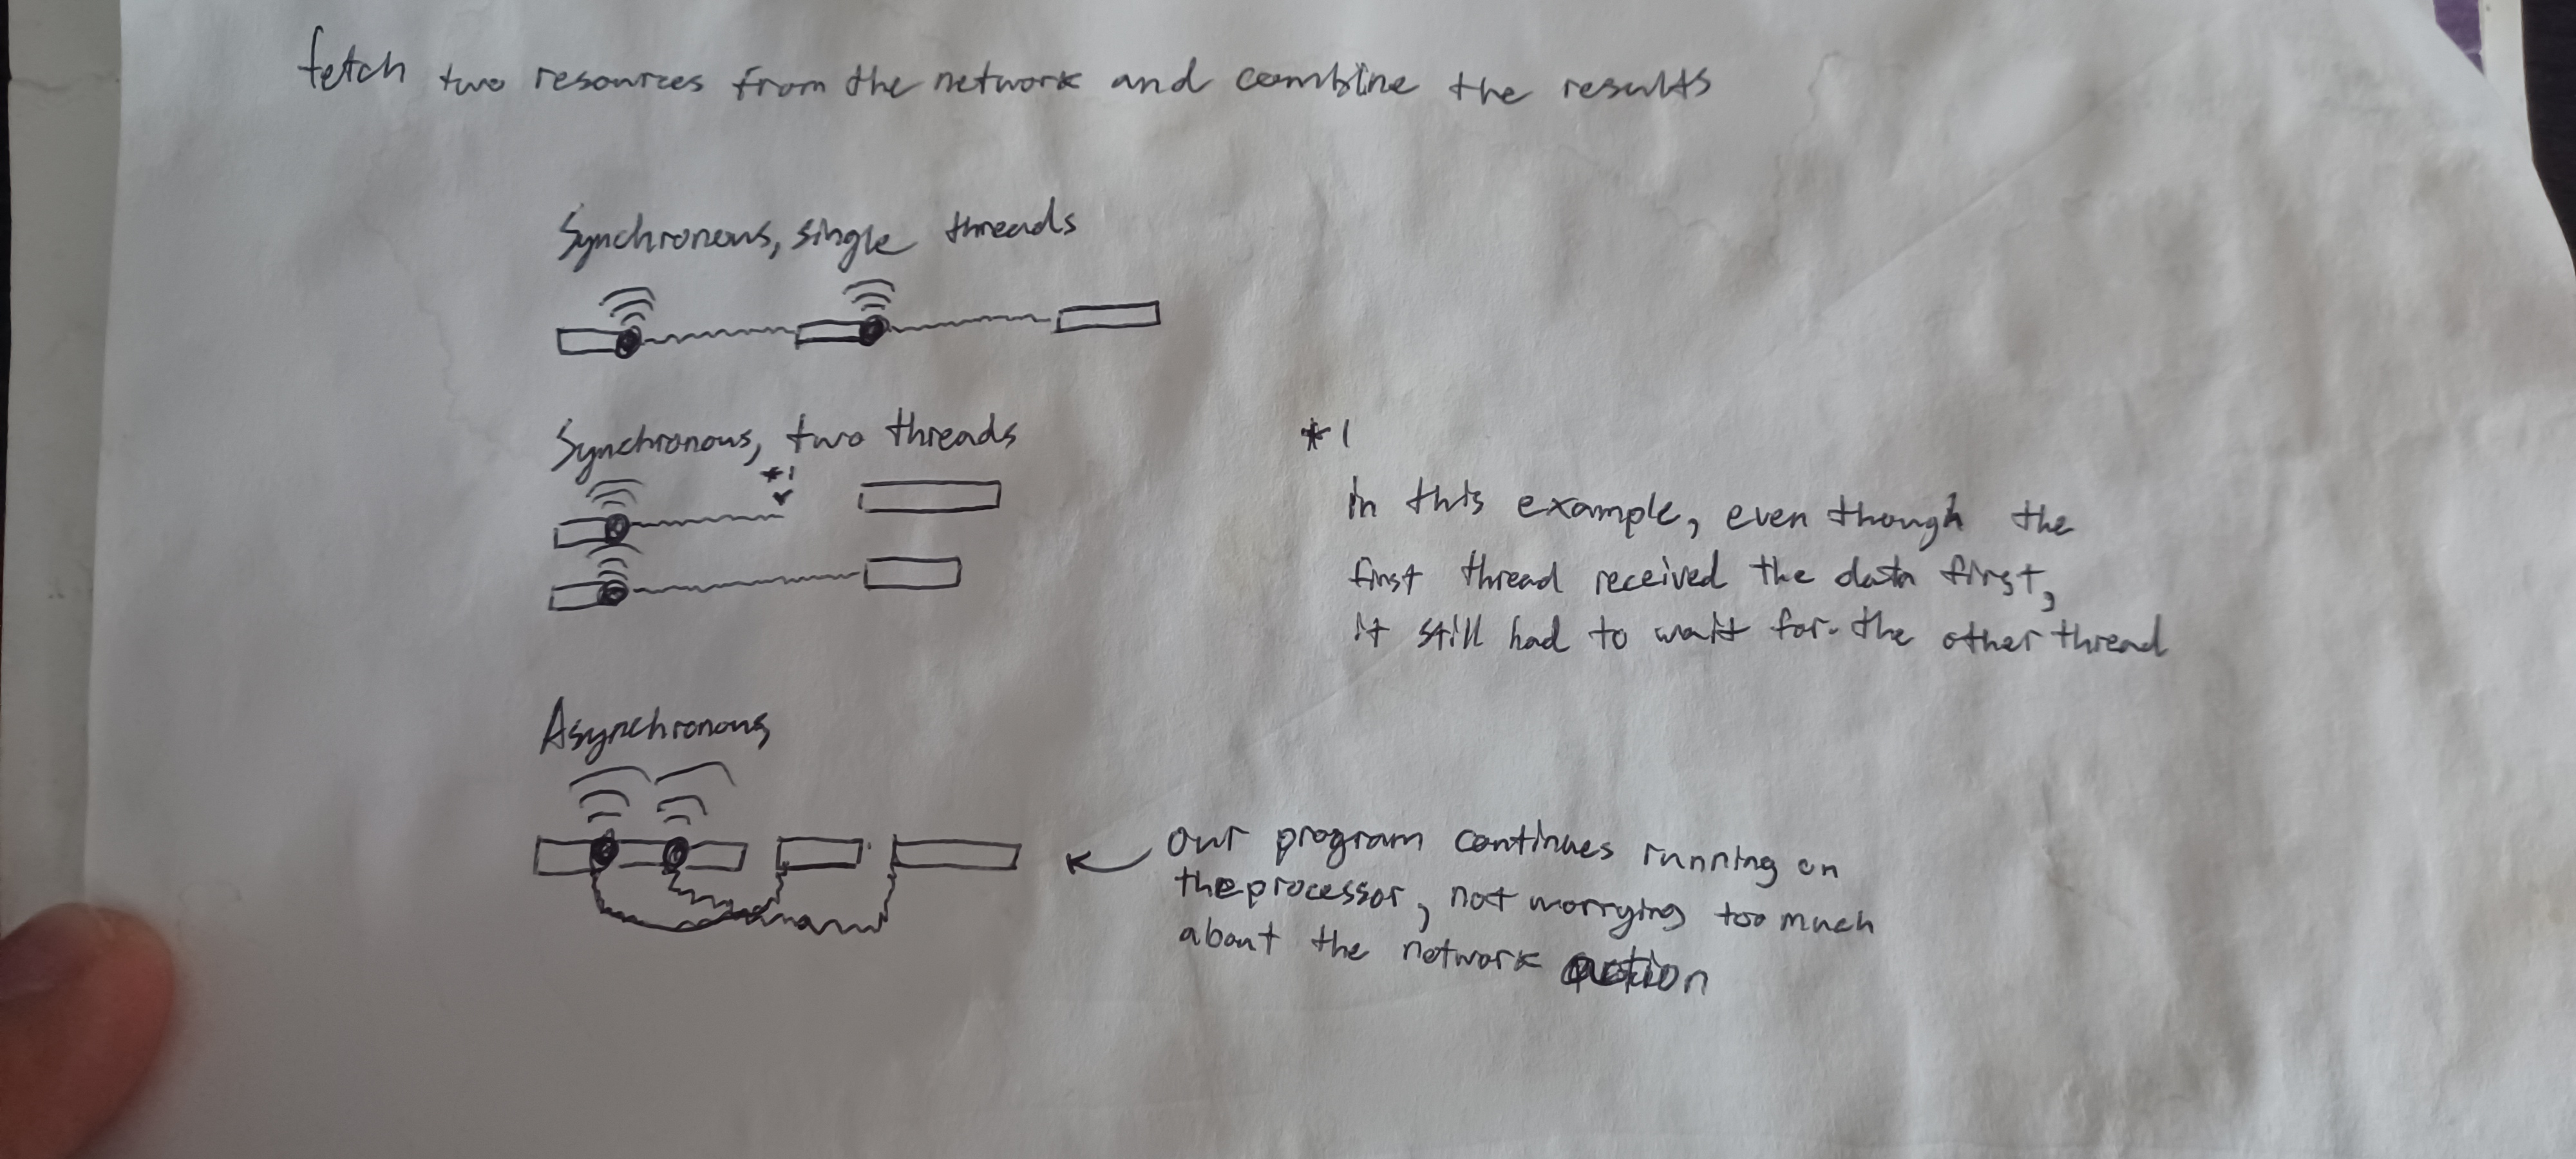 fetch two resources from the network and combine the results
Synchronous, single threads
Synchronous, two threads
*1
*1
in this example, even though the
first thread received the data first,
it still had to wait for the other thread
Asynchronous
Our program continues running on
the processor, not worrying too much
about the network question